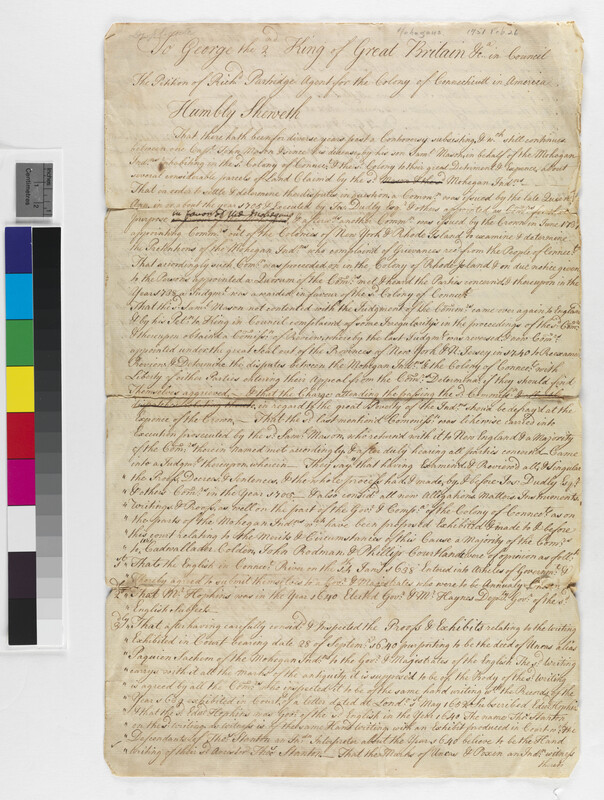 Mohegans 1751 Feb 26
To George the 2d King of Great Britain &ca in Council
The Petition of Richd Partridge Agent for the Colony of Connecticutt in America
Humbly Sheweth
That there hath been for diverse years past a Controversy subsisting & wch still continues
between one Capt John Mason Since his decease, by his son Saml Mason in behalf of the Mohegan
Inds inhabiting in the Sd Colony of Connect & the Sd Colony to their great Detriment & Expence about
several considerable parcels of Land Claim'd by the Sd Mohegan Inds
That in order to settle & determine the disputes in question a Commn was issued by the late Queen
Ann in or about the year 1705 & Executed by Jos: Dudley Esqr & others appointed
purpose in favour of the Mohegans & afterwds another Commn was issued by the Crown in June 1737
appointing Commrs out of the Colonies of New York & Rhode Island to examine & determine
the Pretentions of the Mohegan Inds who complain'd of Grievances recd from the People of Connect
That accordingly sd Comn was proceeded on in the Colony of Rhode Island & on due notice given
to the Persons appointed a Quorum of the Comrs met & heard the Parties concern'd & thereupon in the
Year 1738 a Judgmt was awarded in favour of the Sd Colony of Connectt
That the Sd Saml Mason not contented with the Judgment of the Commrs came over again to England
& by his Petn to the King in Council complain'd of some Irregularitys in the proceedings of the Sd Comrs
& thereupon obtain'd a Comission of Review whereby the last Judgmt was revers'd & new Comrs
appointed under the great Seal out of the Provinces of New York & N: Jersey in 1740 to Reexamine
Review & Determine the disputes between the Mohegan Inds & the Colony of Connect with
Liberty of either Parties entering their Appeal from the Comrs Determinatn if they should find
themselves aggrieved & that the Charge attending the passing the Sd Commission
in regard to the great Poverty of the Inds shou'd be defray'd at the
Expence of the Crown. That the Sd last mention'd Commission was likewise carried into
Execution prosecuted by the Sd Saml Mason, who return'd with it to New England & a Majority
of the Comrs therein Named met accordingly & after duly hearing all parties concern'd Came
into a Judgmt thereupon wherein They say that having Examined & Reviewed all & singular
the Proofs, Decrees & Sentences, & the whole process had & made by & before Jos: Dudly Esqr
& others Comrs in the Year 1705 & also consid: all new Allegations Matters Instruments
Writings & Proofs as well on the part of the Govr & Compy of the Colony of Connect as on
the parts of the Mohegan Inds wch have been preferred Exhibited & made to & before
this Court relating to the Merits & Circumstances of this Cause a Majority of the Comrs
to wit Cadwallader Colden, John Rodman & Phillip Courtlandt were of opinion as follows
1st That the English in Connect River on the 14 Janry 1638 Entred into Articles of Governmt &
thereby agreed to submit themselves to a Govr & Magistrates who were to be Annualy Chosen
2d That Mr Hopkins was in the Year 1640 Elected Govr & Mr Haynes Deputy Govr of the Sd
English subjects
3dly That after having carefully consid: & Inspected the Proofs & Exhibits relating to the writing
Exhibited in Court bearing date 28 of Septemr 1640 purporting to be the deed of Uncas alias
Poquiom Sachem of the Mohegan Inds to the Govr & Magistrates of the English The Sd Writing
carrys with it all the marks of the antiquity it is suppos'd to be of the Body of the Sd Writing
is agreed by all the Comrs who inspected it to be of the same hand writing with the Records of the
Year 1639 exhibited in Court, of a letter dated at Lond 7 May 1652 Subscribed Edwd Hopkins
that the Sd Edwd Hopkins was Govr of the Sd English in the Year 1640 The name Thos Stanton
on the Sd writing as witness is of the same Hand writing with an Exhibit produced in Court & the
Descendants of Thos Stanton an Indn Interpreter about the Year 1640 believe to be the Hand
Writing of their Sd Ancestor Thos Stanton That the Marks of Uncas & Poxen an Indn witness
thereto